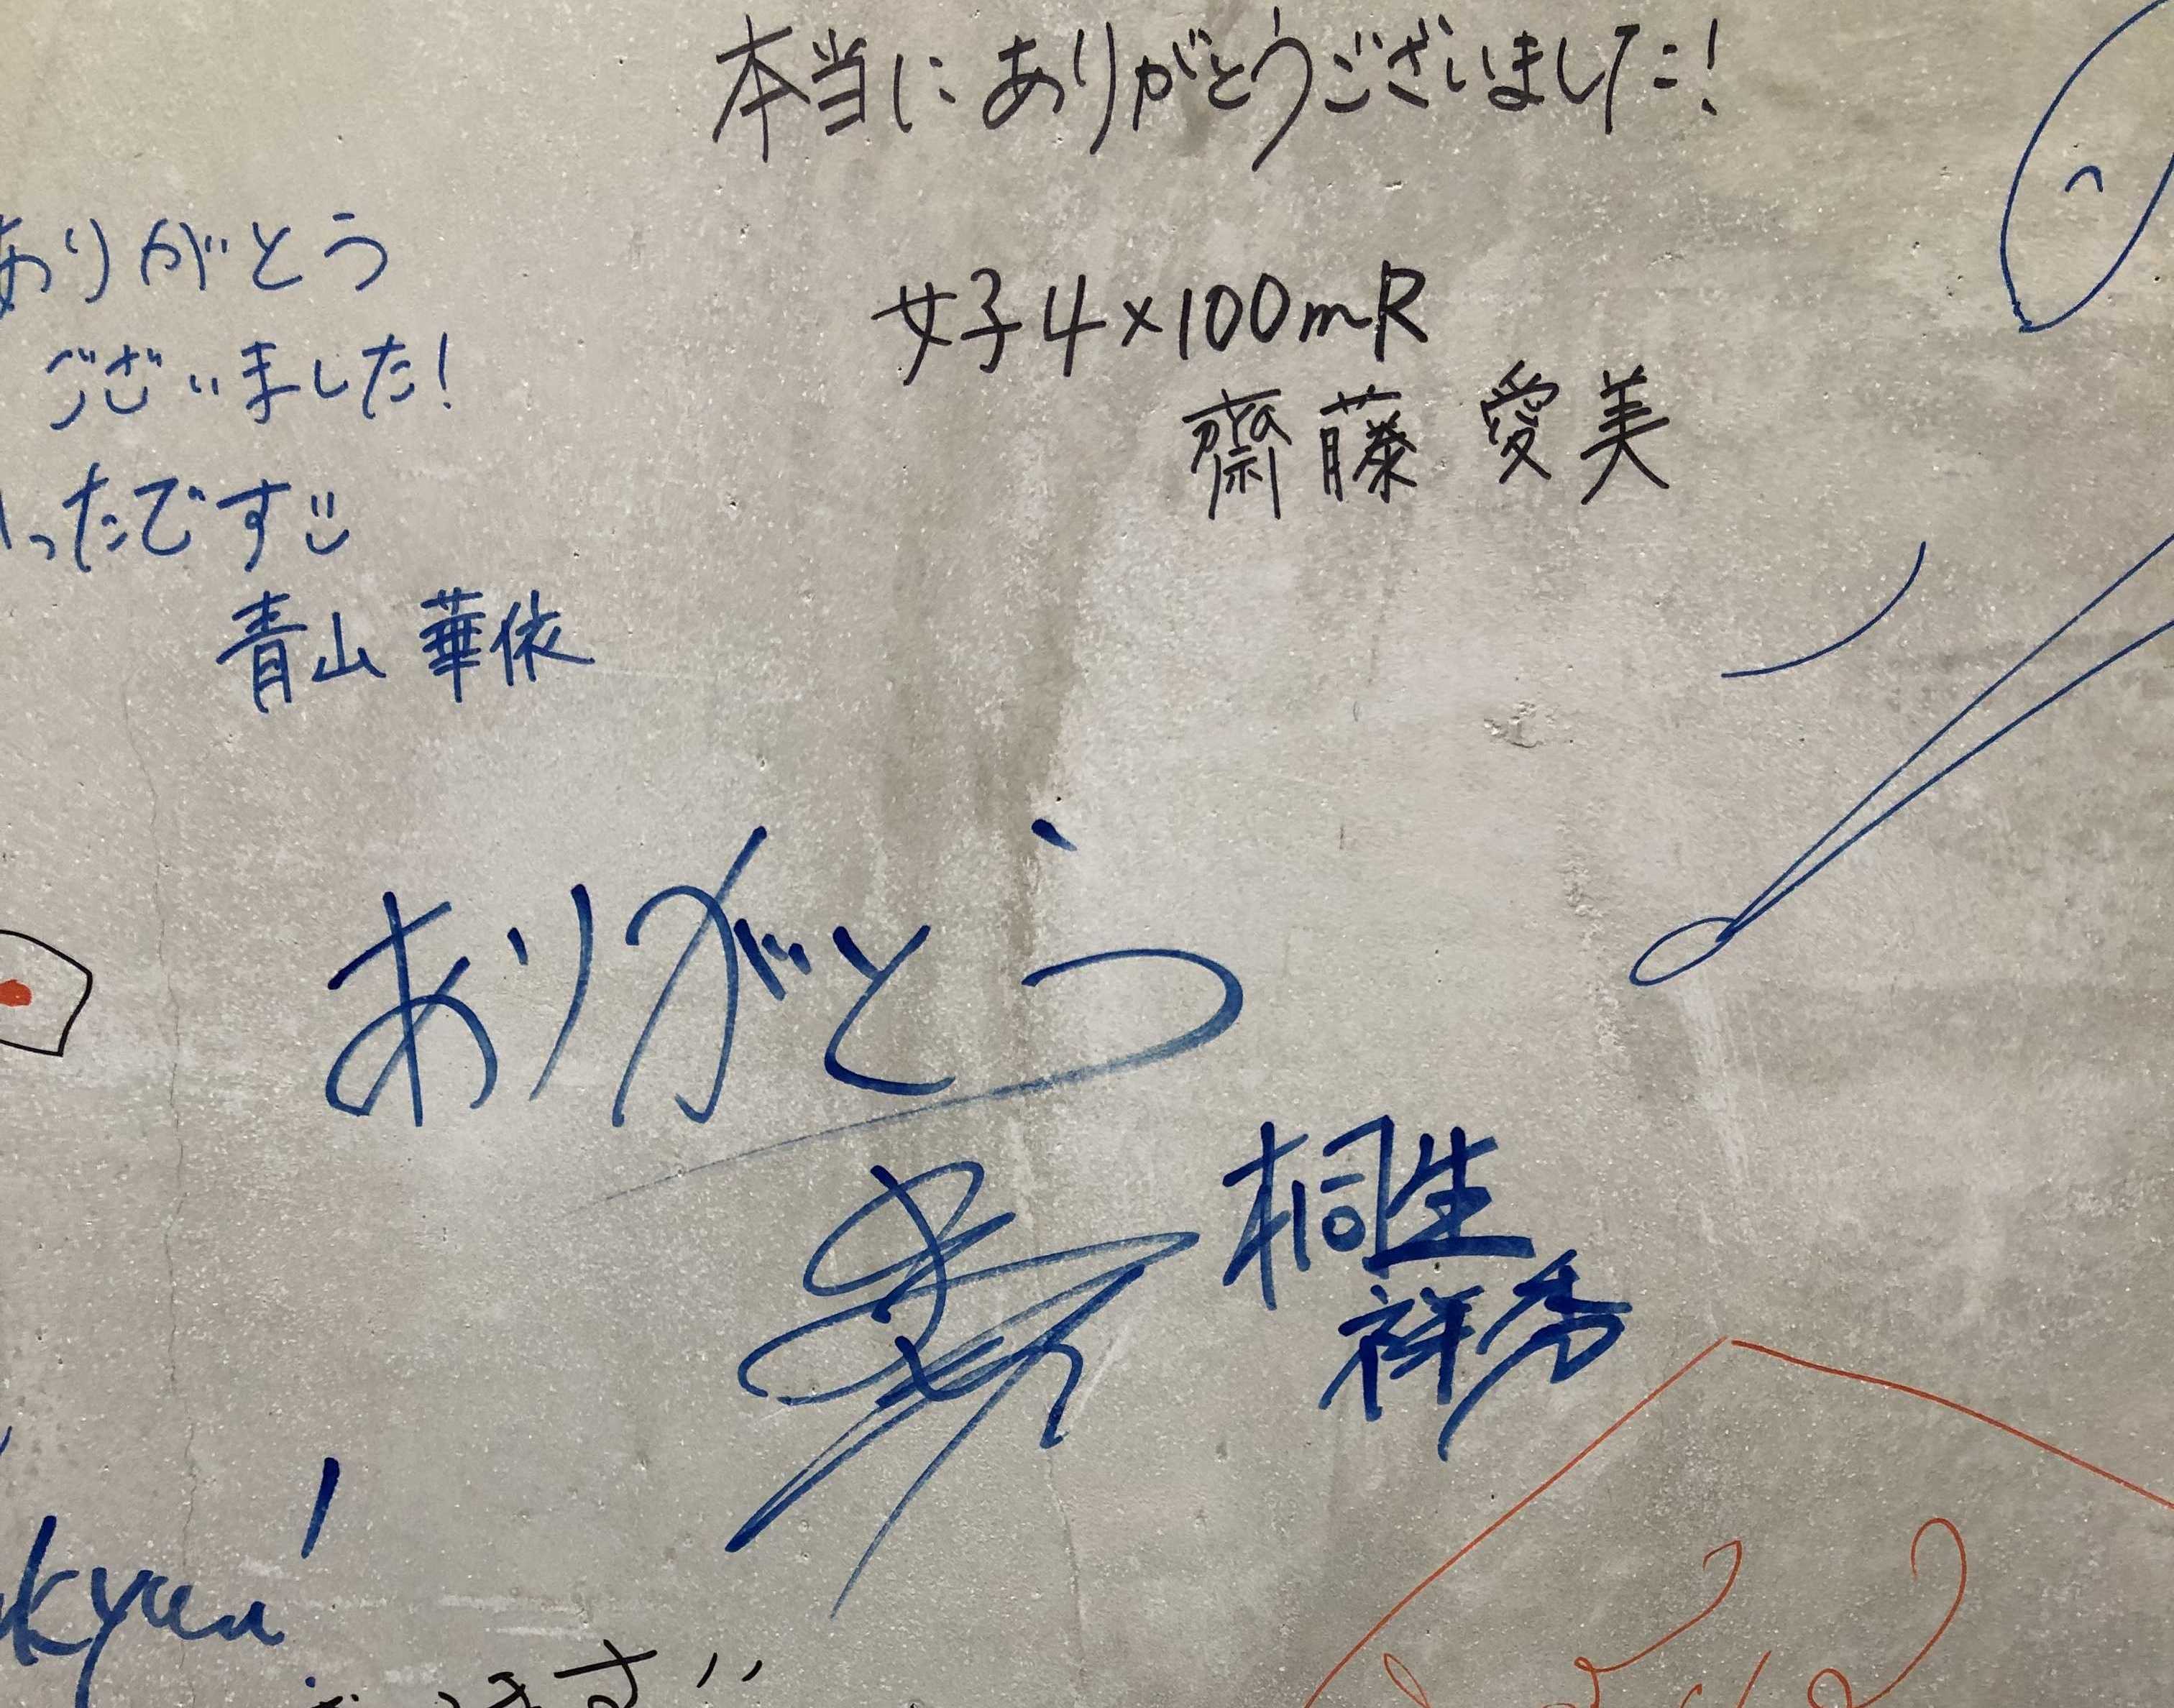 本当にありがとうございました!
女子4×100mR
齋藤 愛美
ありがとう
ございました!
ったです
青山 華依
ありがとう
桐生
祥秀
kyuu
ます!!